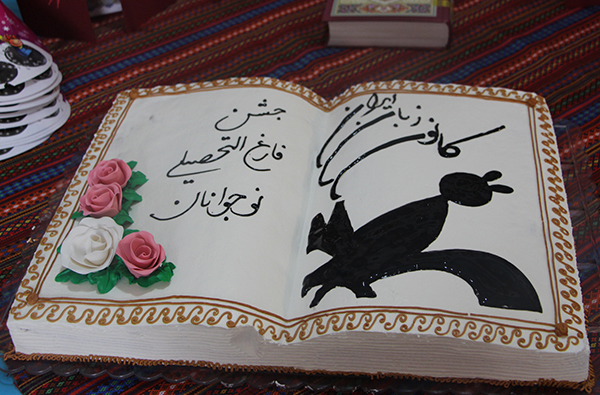 کانون زبان ایران
جشن
فارغ التحصیلی
نوجوانان